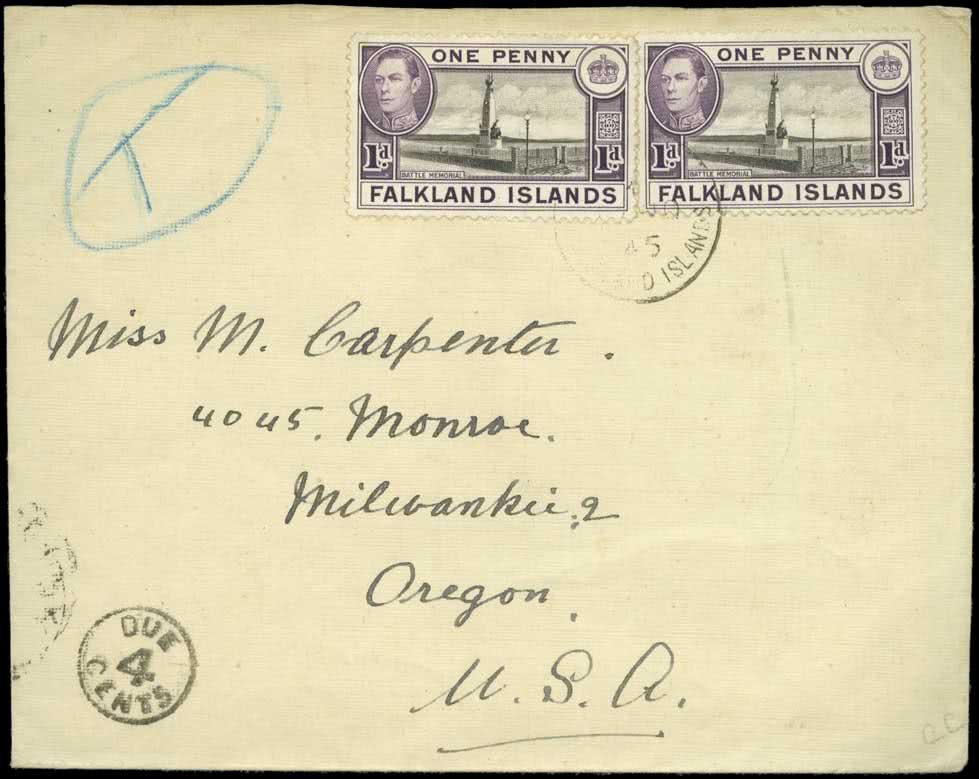 T
ONE PENNY
1d.
1d.
BATTLE MEMORIAL
FALKLAND ISLANDS
ONE PENNY
1d.
1d.
BATTLE MEMORIAL
FALKLAND ISLANDS
45
D ISLANDS
Miss M. Carpenter.
4045. Monroe.
Milwaukie, 2
Oregon.
U. S. A.
DUE
4
CENTS